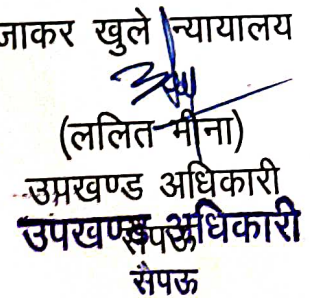 जाकर खुले न्यायालय
(ललित मीना)
उपखण्ड अधिकारी
उपखण्ड अधिकारी
सैपऊ
सैपऊ